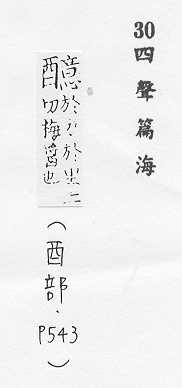 30四聲篇海
醷於於二
切梅醬也
（酉部．P543）